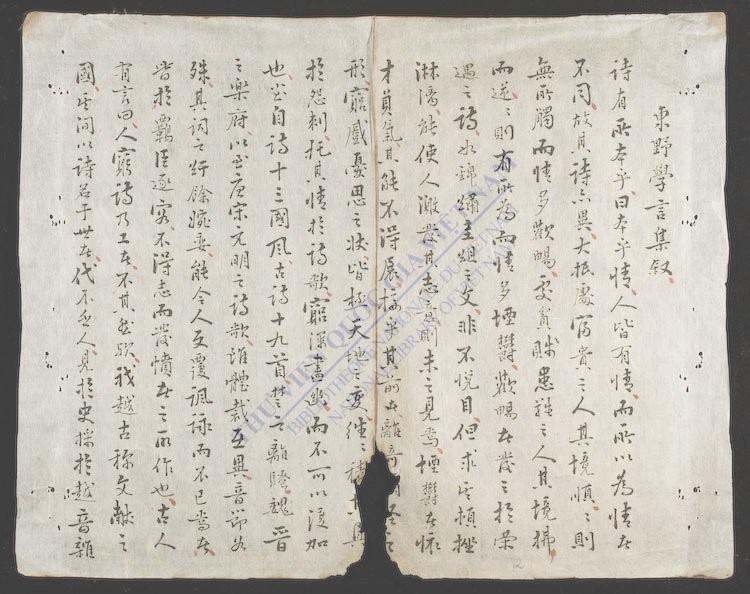 東野學言集叙
詩有所本乎曰本乎情人皆有情而所以為情者
不同故其詩亦異大抵處富貴之人其境順〻則
無所觸而情多歡暢處貧賤患難之人其境拂
而逆〻則有所為而情多堙鬱歡暢者發之於榮
遇之詩如錦繡圭組之文非不悅目但求其頓挫
淋漓能使人激發其志則未之見焉堙鬱者懷
才負氣其能不得展於其前者離奇
形窮慼憂思之狀皆極天地之變徃〻積與
於怨刺托其情於詩歌窮深盡幽而不可以復加
也自詩十三國風古詩十九首楚之離騷魏晉
之樂府以至唐宋元明之詩歌雖體裁互異音節各
殊其詞之紆餘婉委能令人反覆諷詠而不已焉者
皆於羈臣逐客不得志而發憤者之所作也古人
有言曰人窮詩乃工者不其然歟我越古称文獻之
國其间以詩名于世者代不乏人見於史採於越音雜
THƯ VIỆN QUỐC GIA VIỆT NAM
BIBLIOTHÈQUE NATIONALE DU VIETNAM
NATIONAL LIBRARY OF VIETNAM